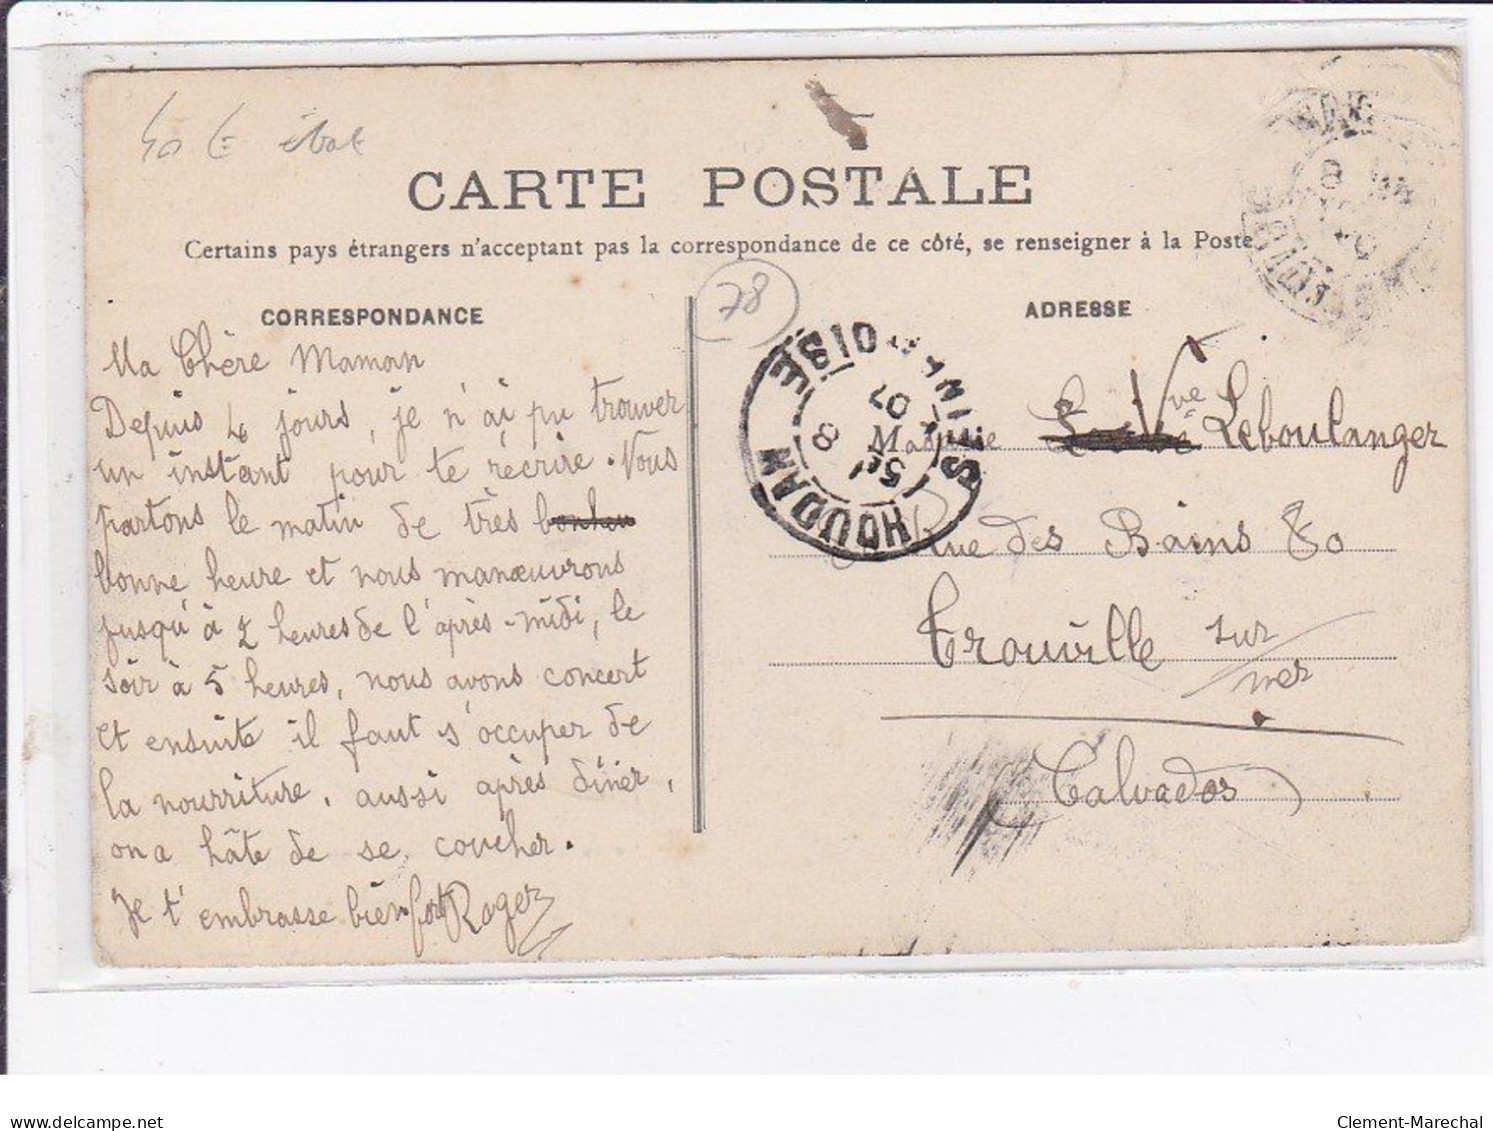 40 E
CARTE POSTALE
Certains pays étrangers n'acceptant pas la correspondance de ce côté, se renseigner à la Poste
78
CORRESPONDANCE
Ma Chère Maman
Depuis 4 jours, je n'ai pu trouver
un instant pour te récrire. Nous
partons le matin de très
bonne heure et nous manœuvrons
jusqu'à 2 heures de l'après-midi, le
soir à 5 heures, nous avons concert
et ensuite il faut s'occuper de
la nourriture, aussi après dîner,
on a hâte de se coucher.
Je t'embrasse bien fort Roger
ADRESSE
M Vve Leboulanger
Rue des Bains 80
Trouville sur
mer
Calvados
HOUDAN
SEINE-ET-OISE
8
07
Clement-Marechal